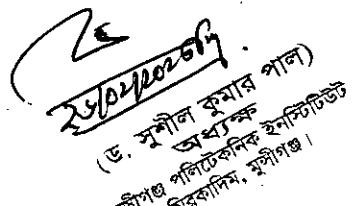 (ড. সুশীল কুমার পাল)
অধ্যক্ষ
মুন্সীগঞ্জ পলিটেকনিক ইনস্টিটিউট
মিরকাদিম, মুন্সীগঞ্জ।